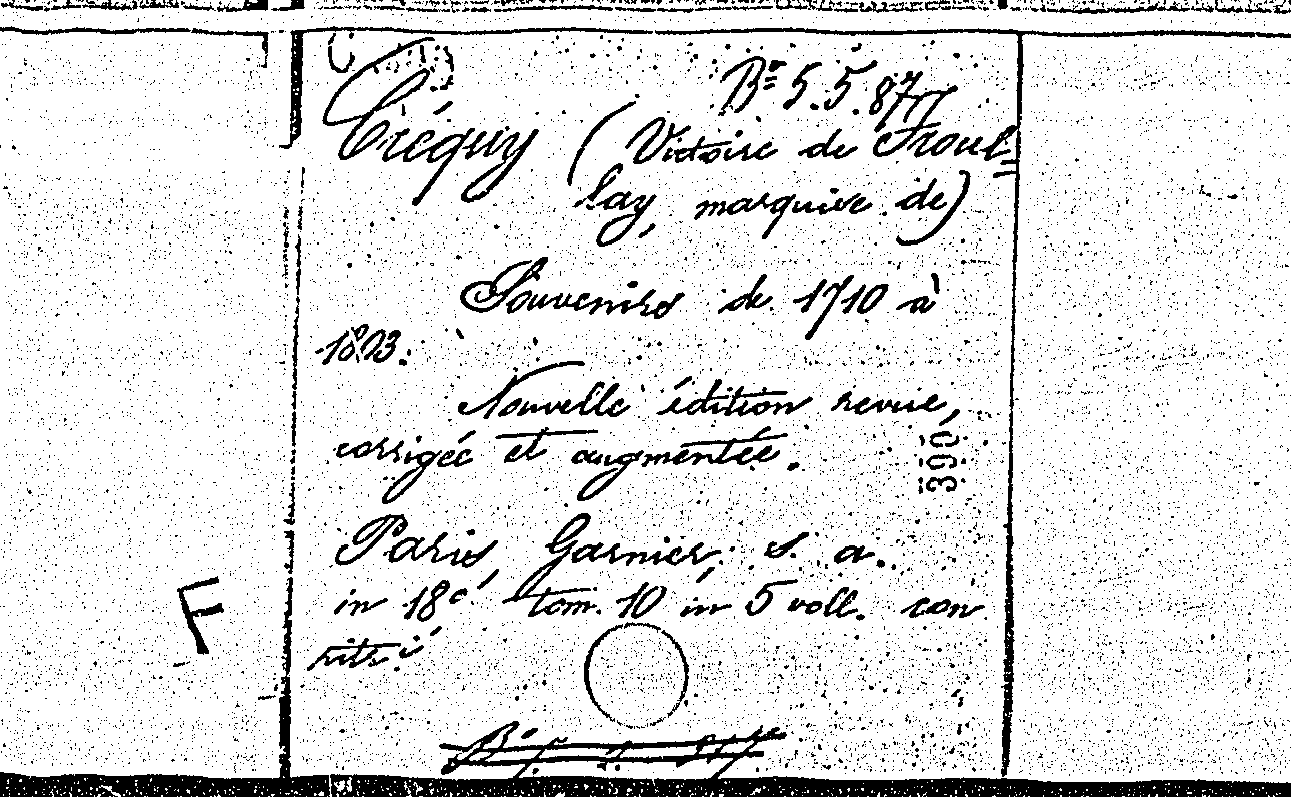 Bº 5.5.87
Créquy (Victoire de Froul=
lay, marquise de)
Souvenirs de 1710 à
1803.
Nouvelle édition revue,
corrigée et augmentée.
390
Paris, Garnier, s. a.
in 18º tom. 10 in 5 voll. con
ritr.i
F